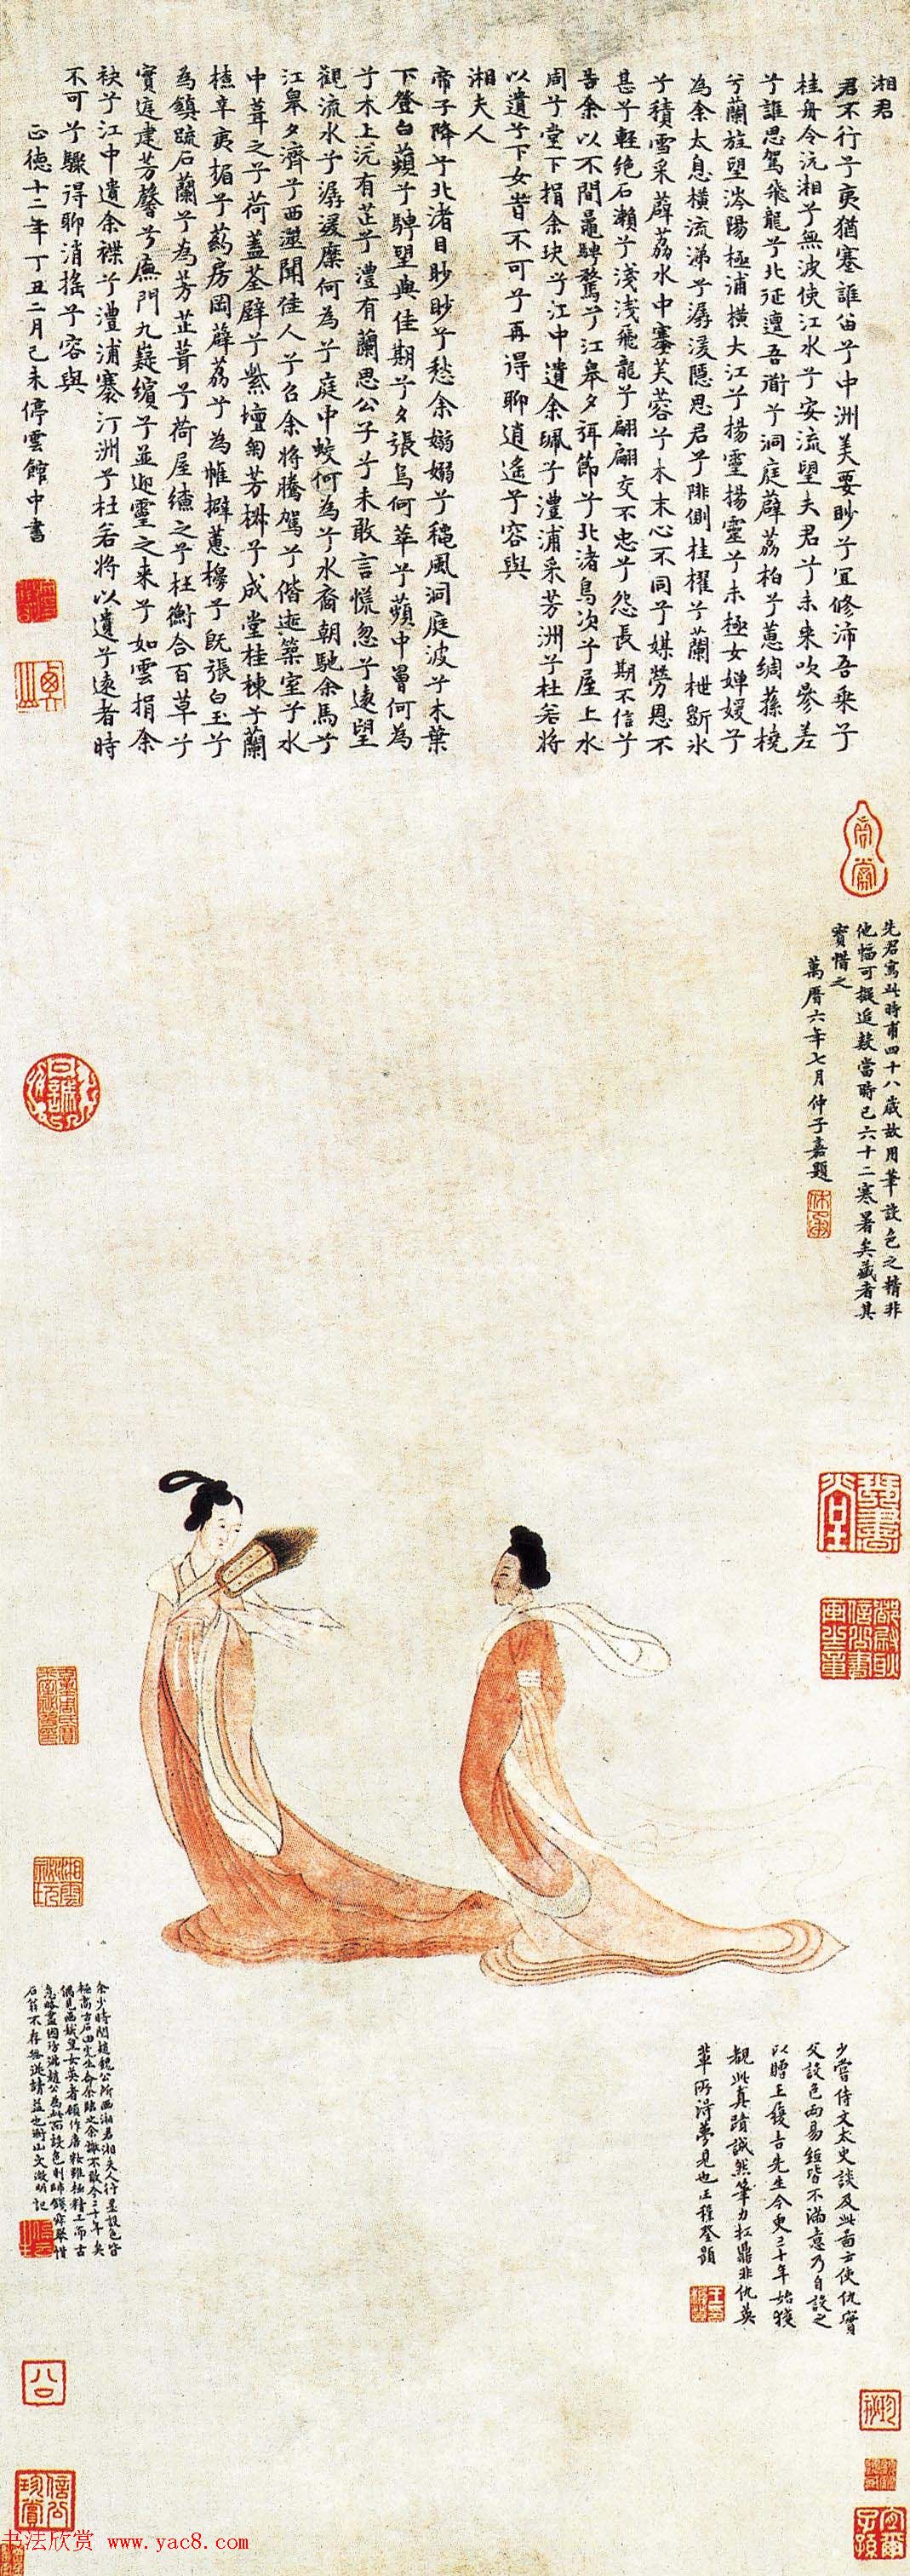 湘君
君不行兮夷猶蹇誰留兮中洲美要眇兮宜修沛吾乘兮
桂舟令沅湘兮無波使江水兮安流望夫君兮未來吹參差
兮誰思駕飛龍兮北征邅吾道兮洞庭薜荔柏兮蕙綢蓀橈
兮蘭旌望涔陽極浦橫大江兮揚靈揚靈兮未極女嬋媛兮
為余太息橫流涕兮潺湲隱思君兮陫側桂櫂兮蘭枻斲冰
兮積雪采薜荔水中搴芙蓉兮木末心不同兮媒勞恩不
甚兮輕絶石瀨兮淺淺飛龍兮翩翩交不忠兮怨長期不信兮
告余以不閒鼂騁騖兮江皋夕弭節兮北渚鳥次兮屋上水
周兮堂下捐余玦兮江中遺余珮兮澧浦采芳洲兮杜若將
以遺兮下女旹不可兮再得聊逍遙兮容與
湘夫人
帝子降兮北渚目眇眇兮愁余嫋嫋兮穐風洞庭波兮木葉
下登白蘋兮騁望與佳期兮夕張鳥何萃兮蘋中罾何為
兮木上沅有芷兮澧有蘭思公子兮未敢言慌忽兮遠望
觀流水兮潺湲麋何為兮庭中蛟何為兮水裔朝馳余馬兮
江皋夕濟兮西澨聞佳人兮召余將騰駕兮偕逝築室兮水
中葺之兮荷蓋荃壁兮紫壇匊芳椒兮成堂桂棟兮蘭
橑辛夷楣兮葯房罔薜荔兮為帷擗蕙櫋兮既張白玉兮
為鎮疏石蘭兮為芳芷葺兮荷屋繚之兮杜衡合百草兮
實庭建芳馨兮廡門九嶷繽兮並迎靈之來兮如雲捐余
袂兮江中遺余褋兮澧浦搴汀洲兮杜若將以遺兮遠者時
不可兮驟得聊消搖兮容與
正德十二年丁丑二月己未停雲館中書
先君寫此時甫四十八歲故用筆設色之精非
他幅可擬追數當時已六十二寒暑矣藏者其
寶惜之
萬曆六年七月仲子嘉題
少嘗侍文太史談及此圖云使仇實
父設色兩易紙皆不滿意乃自設之
以贈王履吉先生今更三十年始獲
覩此真蹟誠然筆力扛鼎非仇英
輩所得夢見也王穉登題
余少時閱趙魏公所畫湘君湘夫人行墨設色皆
極高古石田先生命余臨之余謝不敢今二十年矣
偶見畫娥皇女英者顧作唐粧雖極精工而古
意略盡因彷彿趙公為此而設色則師錢舜舉惜
石翁不存無從請益也衡山文徵明記
琴書堂
都尉耿信公書畫之章
信公珍賞
宜爾子孫
书法欣赏 www.yac8.com